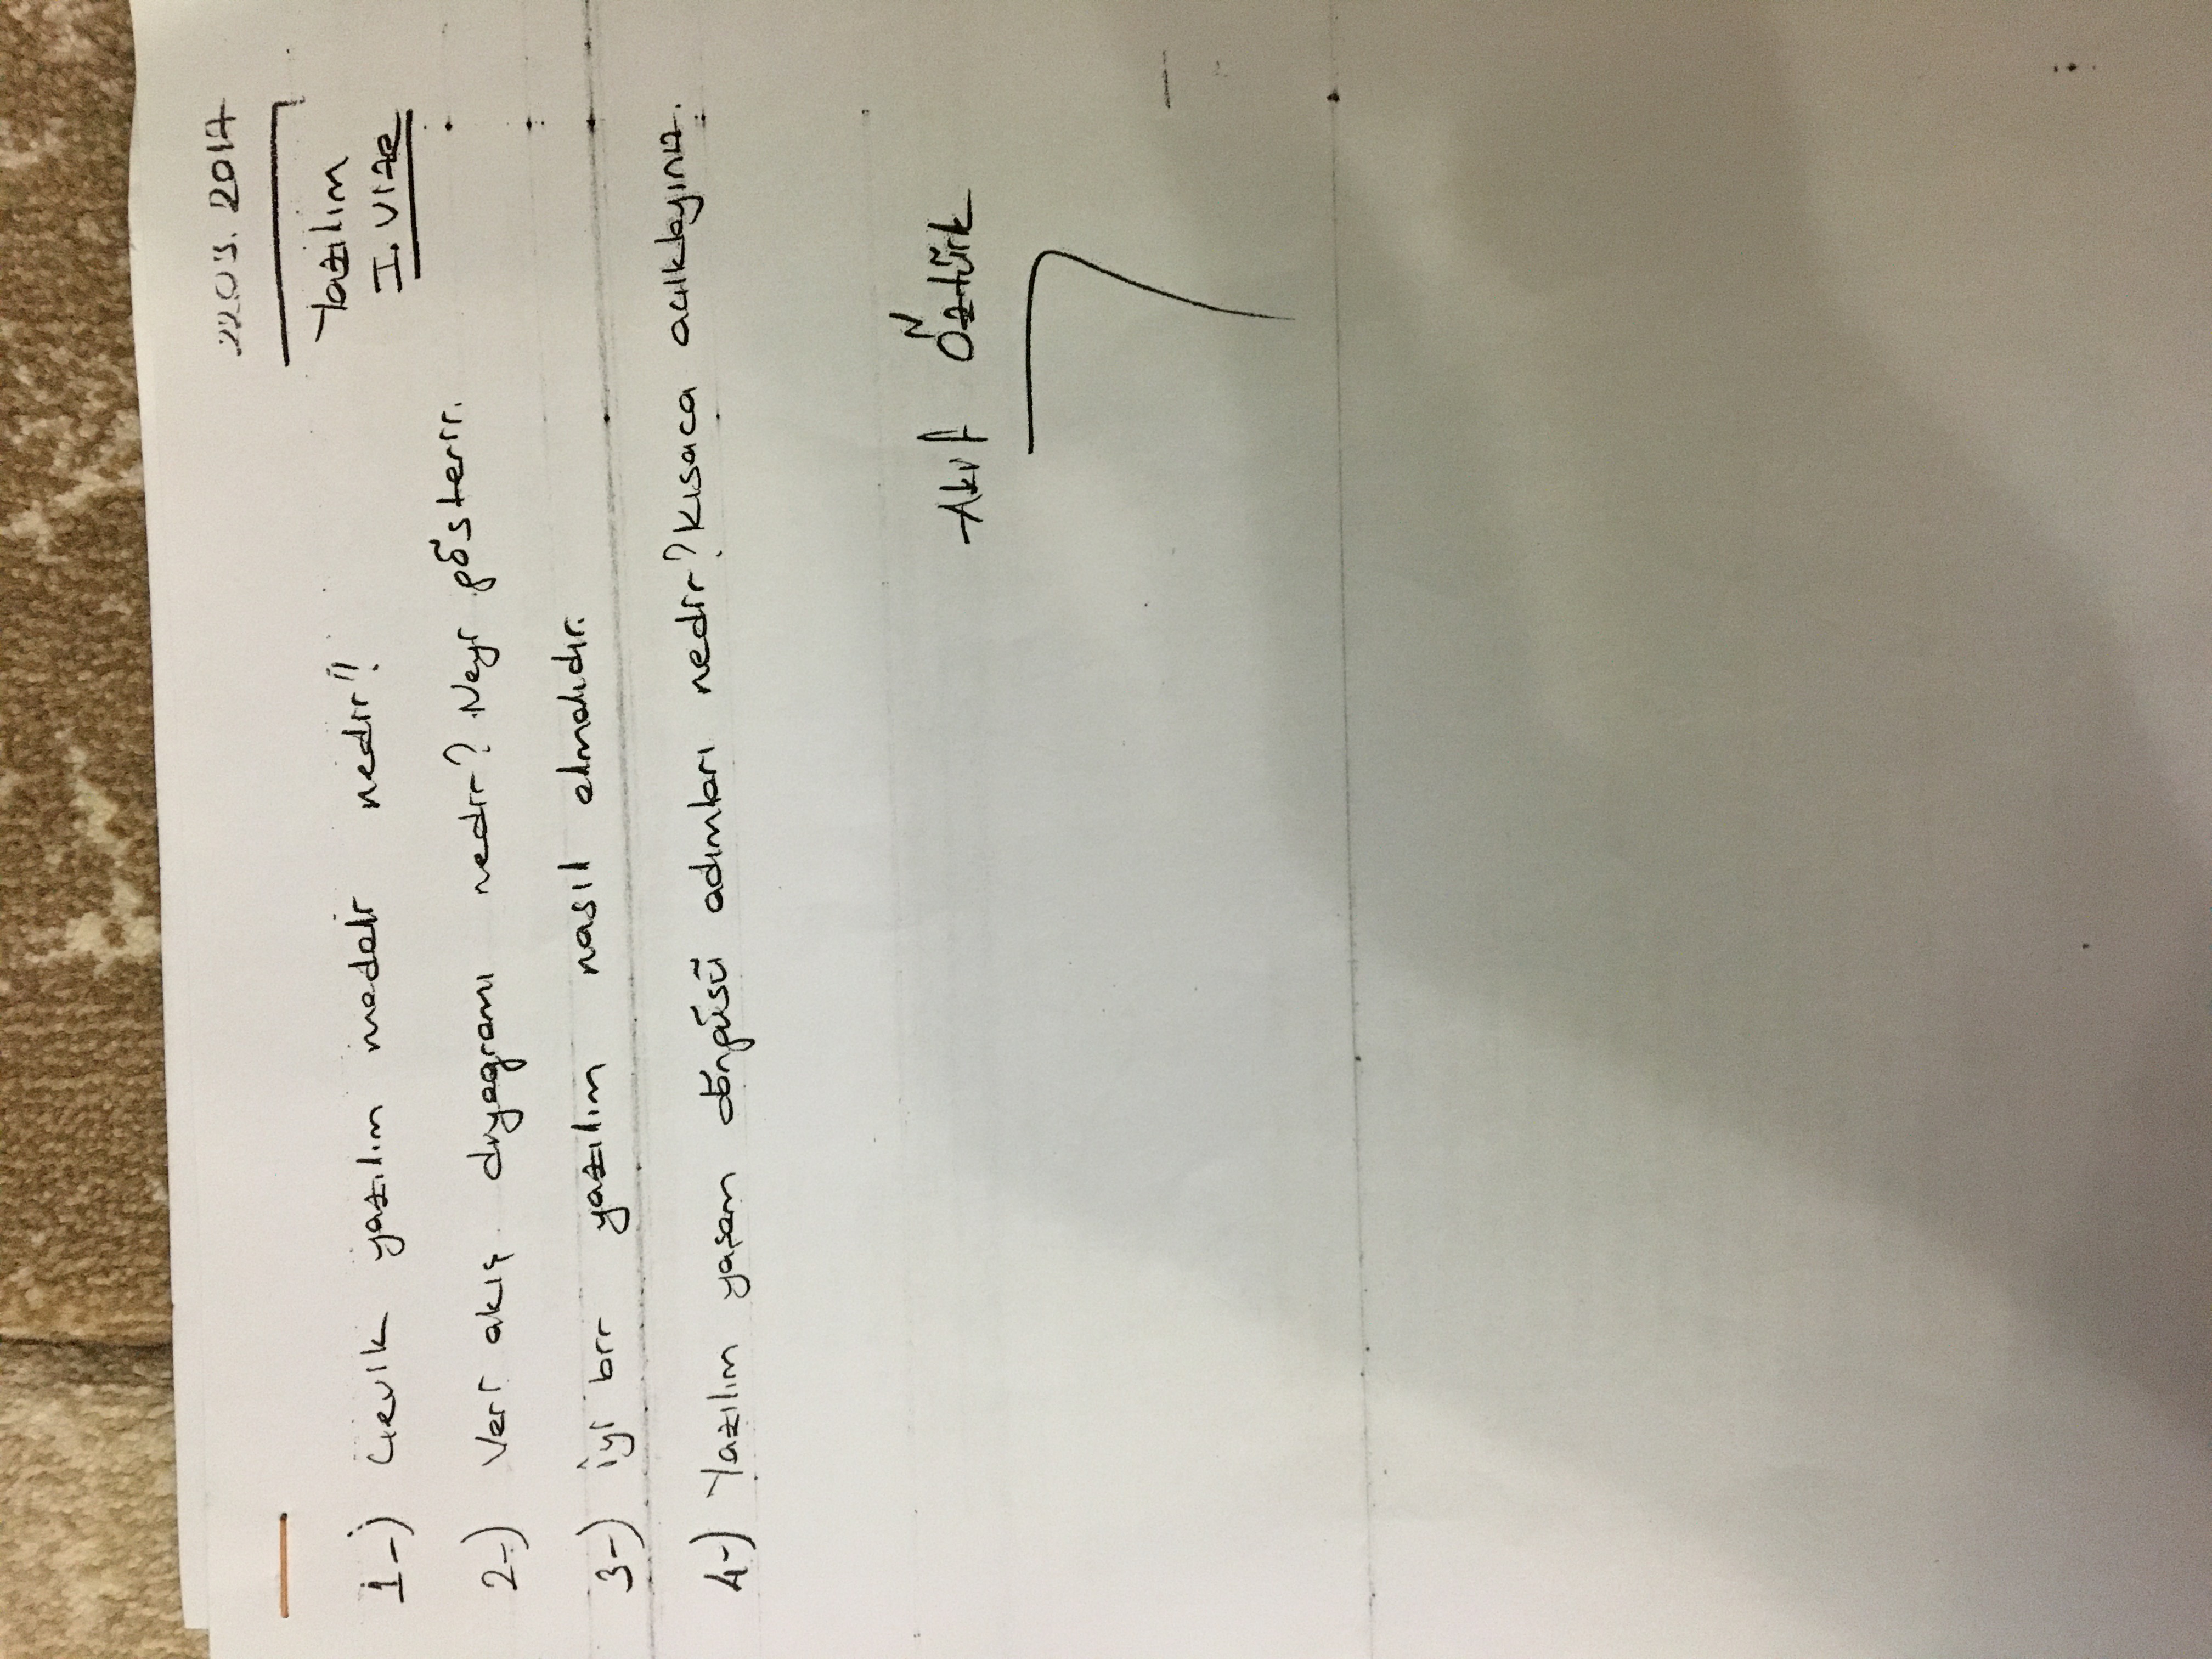 22.03.2017
Yazılım
I. Vize
1-) Çevik yazılım modeli nedir?
2-) Veri akış diyagramı nedir? Neyi gösterir.
3-) İyi bir yazılım nasıl olmalıdır.
4-) Yazılım yaşam döngüsü adımları nedir? Kısaca açıklayınız.
Akif Öztürk